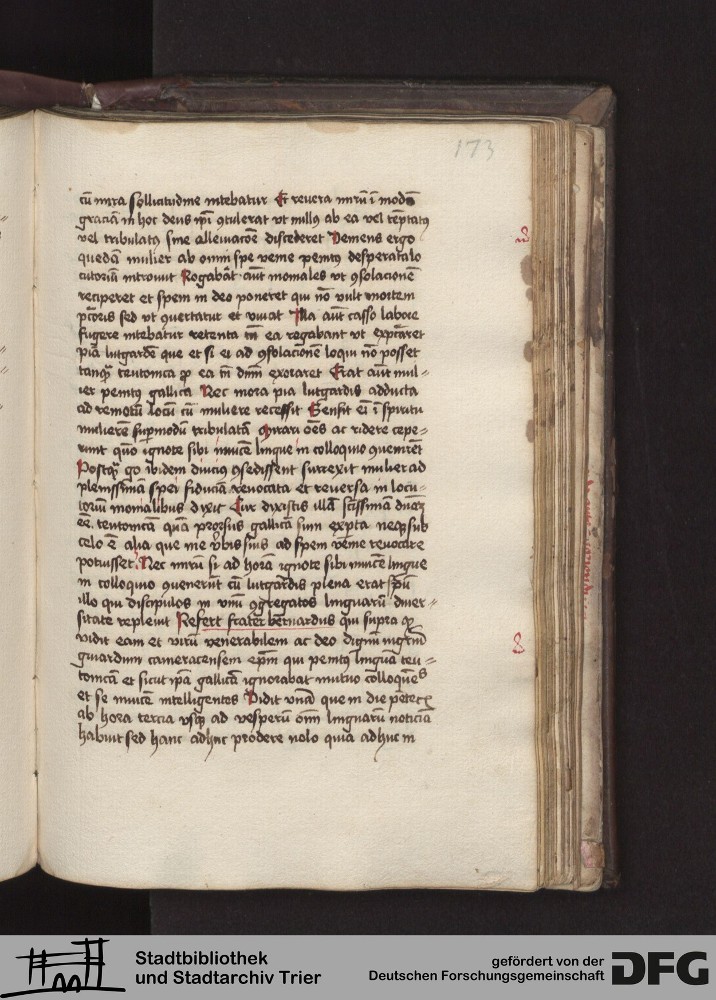 173
cū mira sollicitudine intebatur Et revera mirū ī modū
graciā in hoc deus ip̄i ꝯtulerat vt nullꝰ ab ea vel tēptatꝰ
vel tribulatꝰ sine alleuiacōe discederet Demens ergo
quedā mulier ab omni spe venie penitꝰ desperata lo
cutoriū introiuit Rogabāt aūt moniales vt ꝯsolacionē
reciperet et spem in deo poneret qui nō vult mortem
pctōris sed vt ꝯuertatur et viuat Illa aūt casso labore
fugere intebatur retenta tn̄ ea rogabant vt expctāret
piā lutgardē que et si ei ad ꝯsolacionē loqui nō posset
tanqꝫ teutonica ꝓ ea tn̄ dnm̄ exoraret Erat aūt mul-
ier penitꝰ gallica Nec mora pia lutgardis adducta
ad remotū locū cū muliere recessit Sensit eī ī spiritu
mulierē supmodū tribulatā Mirari oēs ac ridere cepe-
runt quō ignote sibi inuicē lingue in colloquio ꝯuenirēt
Postqꝫ go ibidem diucius ꝯsedissent surrexit mulier ad
plenissimā spei fiduciā reuocata et reuersa in locu-
toriū monialibus dixit Cur dixistis illā sctissimā dnāꝫ
eē teutonicā quā prorsus gallicā sum expta neqꝫ sub
celo ē alia que me vbis suis ad spem venie reuocare
potuisset Nec mirū si ad horā ignote sibi inuicē lingue
in colloquio ꝯuenerūt cū lutgardis plena erat spū
illo qui discipulos in vnū ꝯgregatos linguarū diuer-
sitate repleuit Refert frater bernardus qui supra ꝙ
vidit eam et virū venerabilem ac deo dignū mgrm̄
guiardum cameracensem ep̄m qui penitꝰ linguā teu-
tonicā et sicut ip̄a gallicā ignorabat mutuo colloquētes
et se inuicē intelligentes Vidit vnā que in die pētecꝭ
ab hora tercia vsqꝫ ad vesperū oīm linguarū noticiā
habuit sed hanc adhuc prodere nolo quia adhuc in
Stadtbibliothek
und Stadtarchiv Trier
gefördert von der
Deutschen Forschungsgemeinschaft
DFG